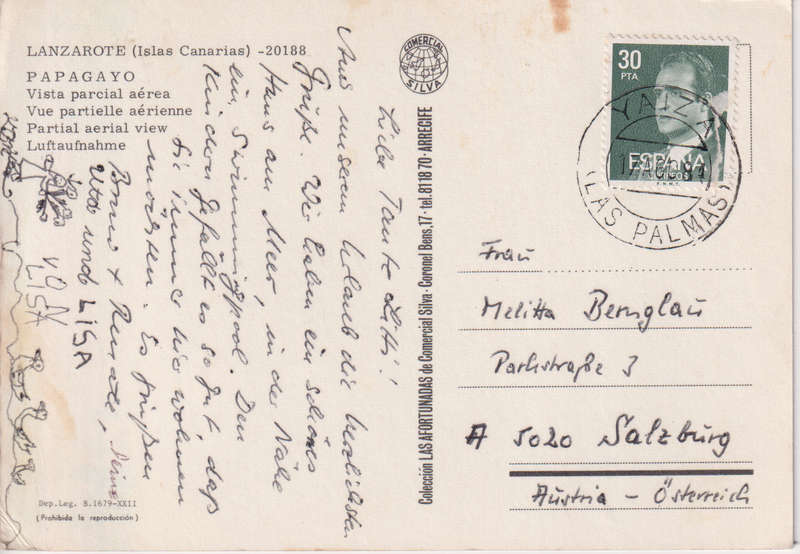 LANZAROTE (Islas Canarias) -20188
PAPAGAYO
Vista parcial aérea
Vue partielle aérienne
Partial aerial view
Luftaufnahme
COMERCIAL
SILVA
Liebe Tante Litti!
Aus unserem Urlaub die herzlichsten
Grüße. Wir haben ein schönes
Haus am Meer, in der Nähe
ein Swimmingpool. Den
Kindern gefällt es so gut, daß
sie immer hier wohnen
möchten. Es grüßen
Bruno + Renate,
Uta und LISA
VON
LISA
Dep. Leg. B.1679-XXII
(Prohibida la reproducción)
Colección LAS AFORTUNADAS de Comercial Silva · Coronel Bens, 17 · tel. 811870 · ARRECIFE
30
PTA
ESPAÑA
CORREOS
F.N.M.T.
YAIZA
(LAS PALMAS)
Frau
Melitta Bernglau
Parkstraße 3
A 5020 Salzburg
Austria - Österreich